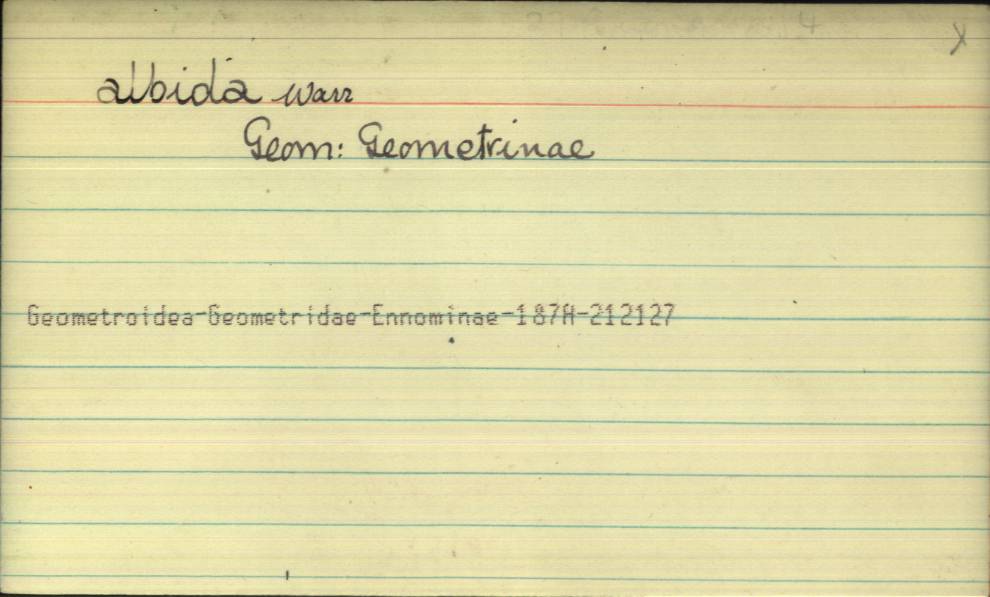 4 X
albida Warr
Geom: Geometrinae
Geometroidea-Geometridae-Ennominae-187A-212127